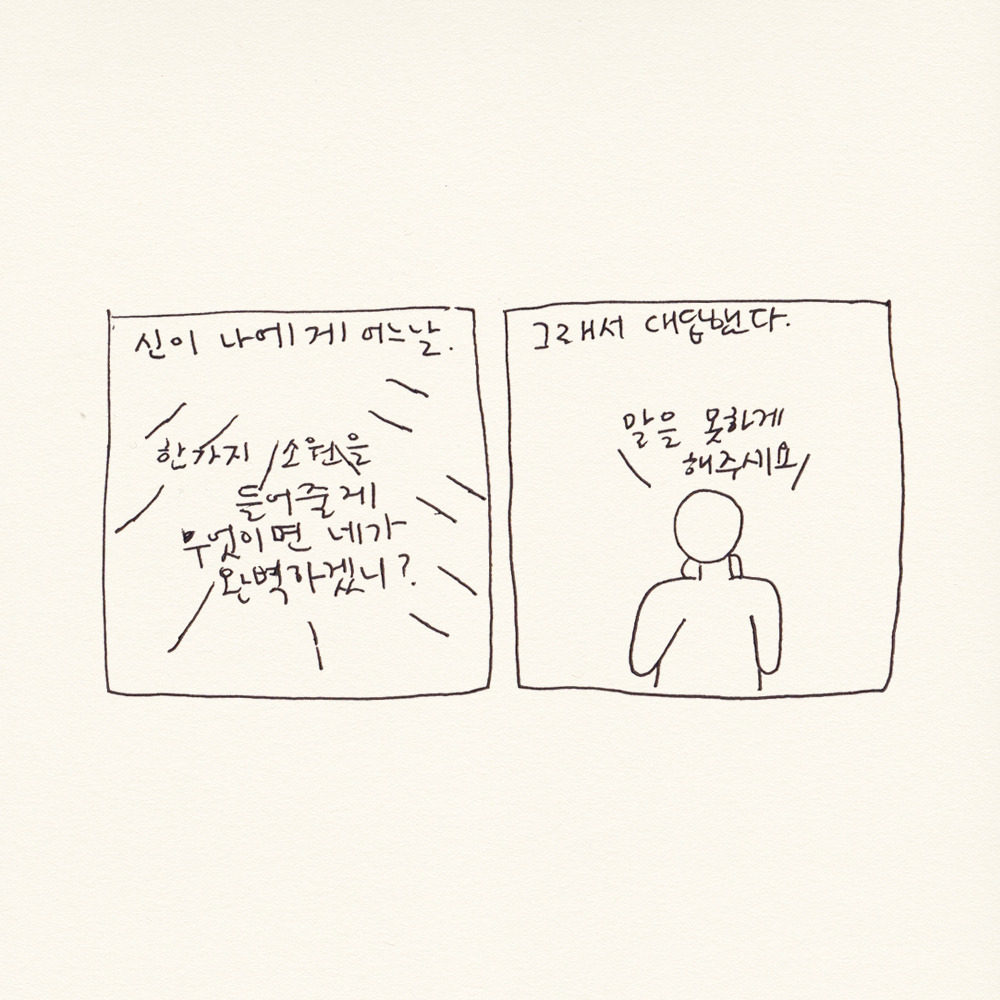 신이 나에게 어느날.
한가지 소원을
들어줄게
무엇이면 네가
완벽하겠니?
그래서 대답했다.
말을 못하게
해주세요